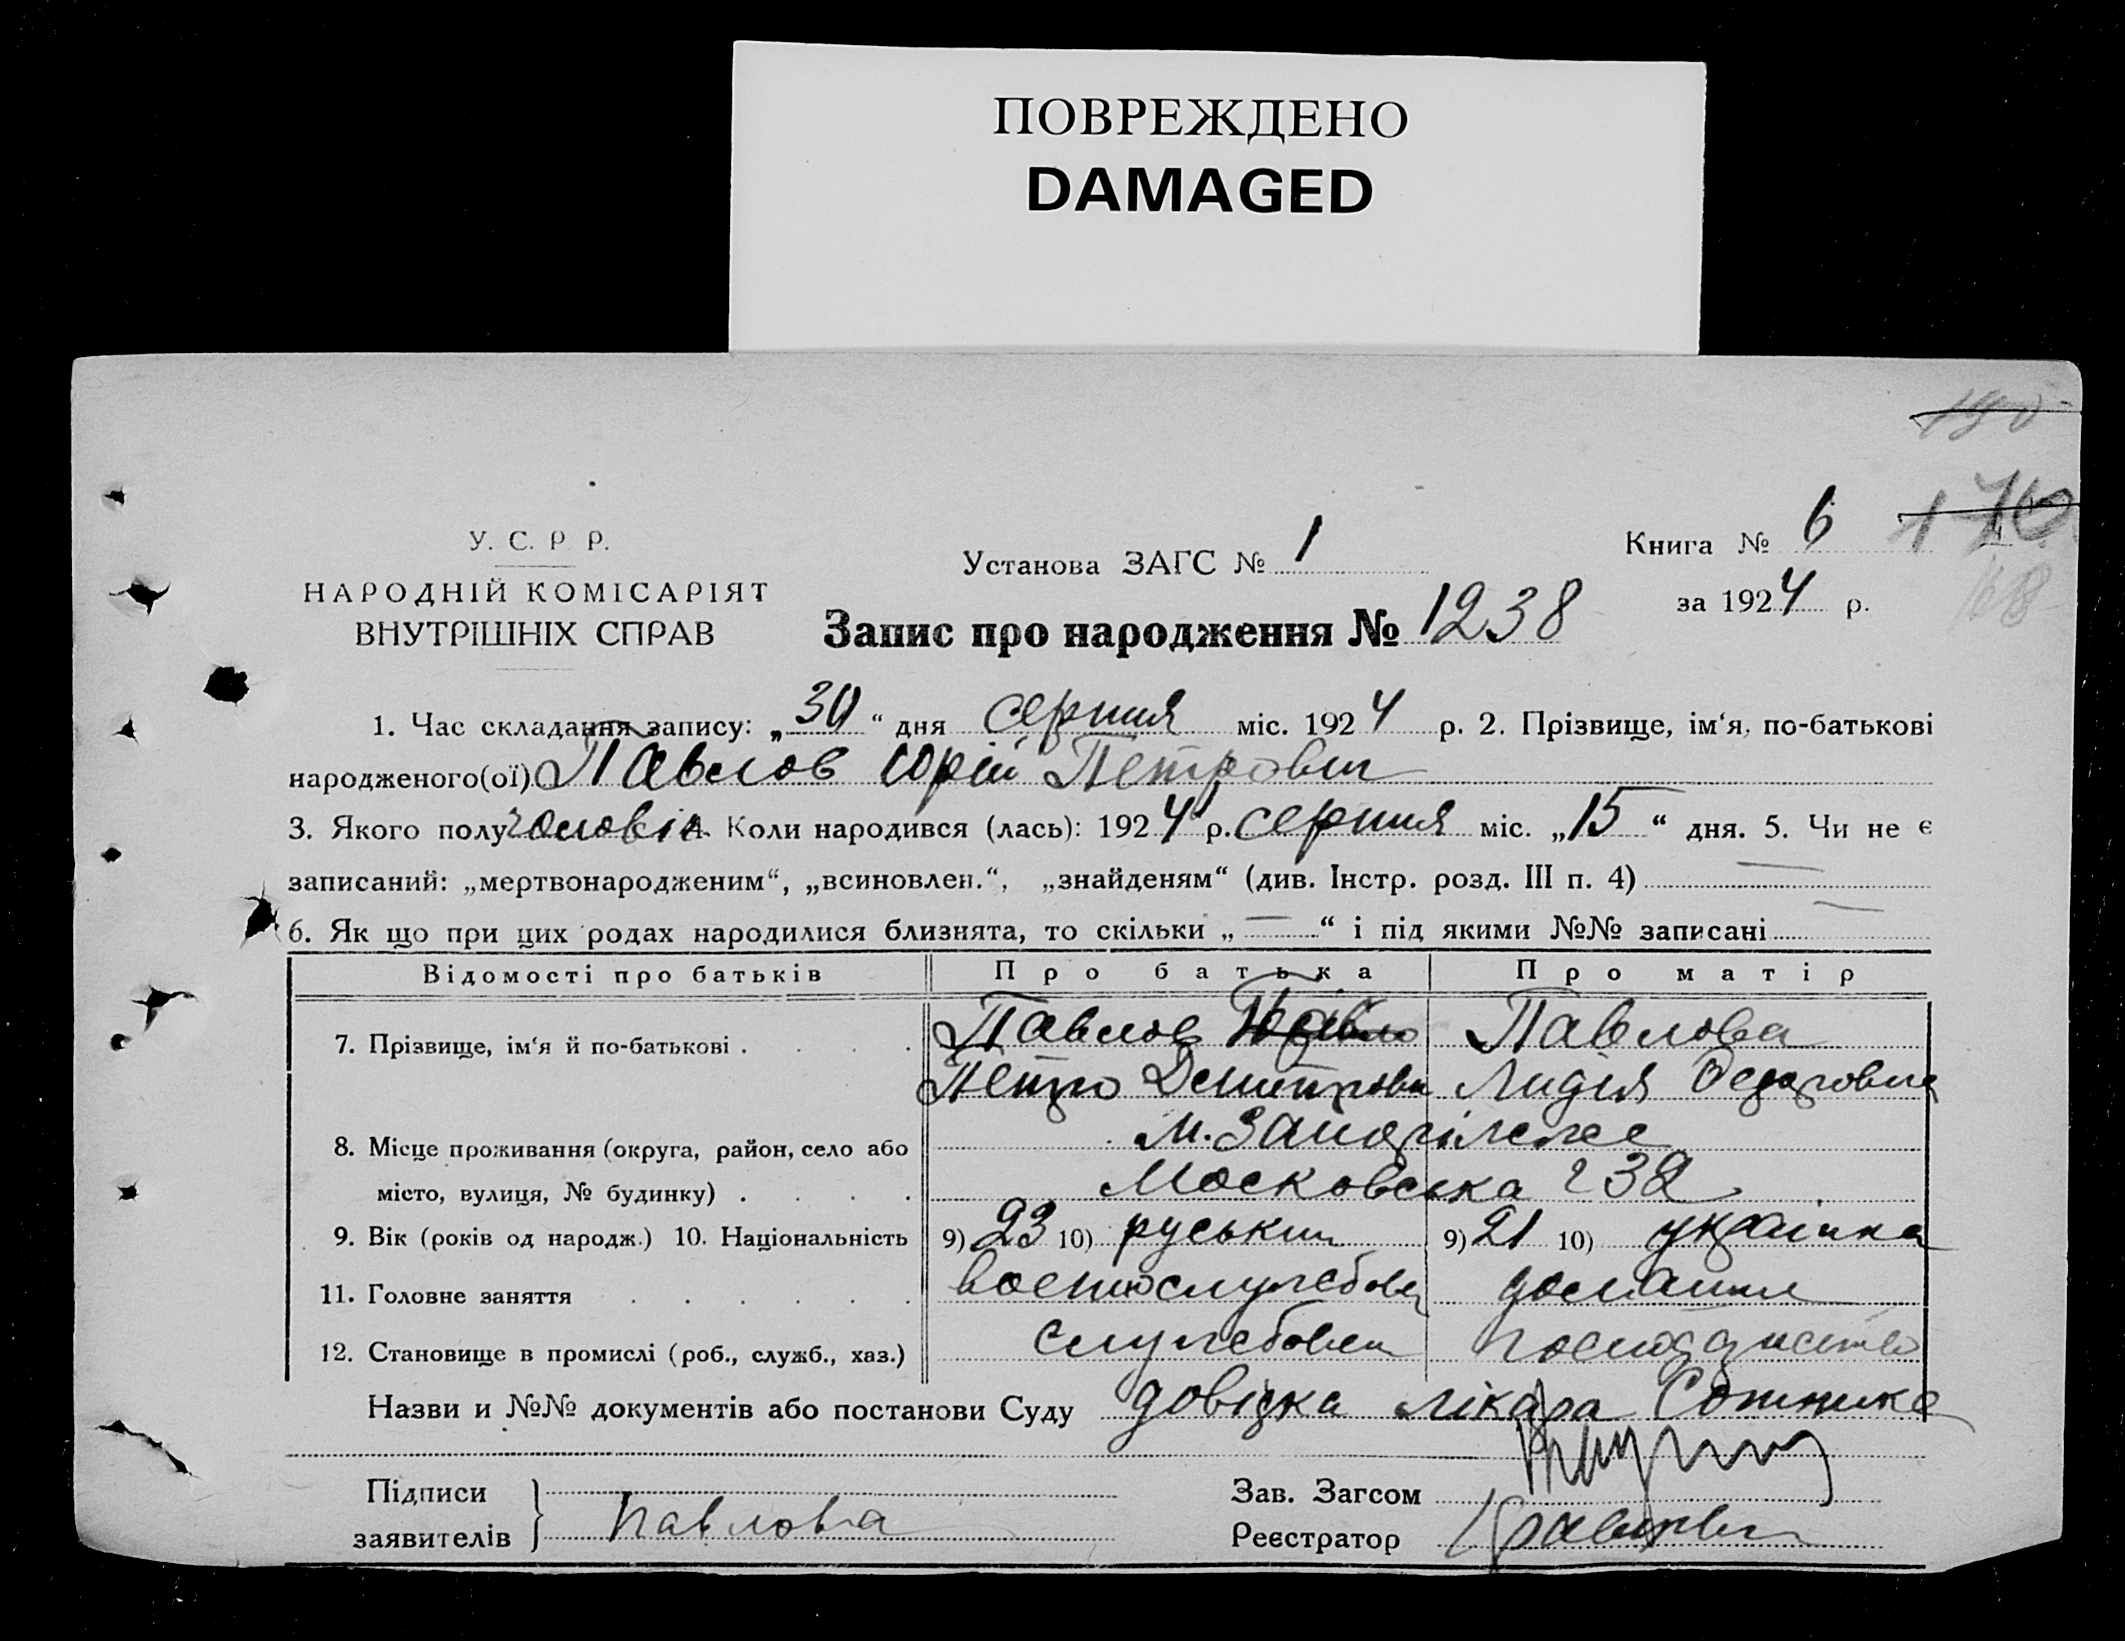 ПОВРЕЖДЕНО
DAMAGED
У. С. Р Р.
НАРОДНІЙ КОМІСАРІЯТ
ВНУТРІШНІХ СПРАВ
Установа ЗАГС № 1
Запис про народження № 1238
Книга № 6
за 1924 р.
1. Час складання запису: „30“ дня серпня міс. 1924 р. 2. Прізвище, ім‘я, по-батькові
народженого(ої) Павлов Юрій Петрович
3. Якого полу чоловік 4. Коли народився (лась): 1924 р. серпня міс. „15“ дня. 5. Чи не є
записаний: „мертвонародженим“, „всиновлен.“, „знайденям“ (див. Інстр. розд. III п. 4)
6. Як що при цих родах народилися близнята, то скільки „—“ і під якими №№ записані
Відомості про батьків Про батька Про матір
7. Прізвище, ім‘я й по-батькові . . . . Павлов Павлова
Петро Дмитрови Лидія Федоровна
8. Місце проживання (округа, район, село або м. Запоріжжє
місто, вулиця, № будинку) . . . . Московська 32
9. Вік (років од народж.) 10. Національність 9) 23 10) руський 9) 21 10) українка
11. Головне заняття . . . . . . военнослужбовец домашнє
12. Становище в промислі (роб., служб., хаз.) службовец господарство
Назви и №№ документів або постанови Суду довідка лікара Сотника
Підписи
заявителів Павлова
Зав. Загсом
Реєстратор